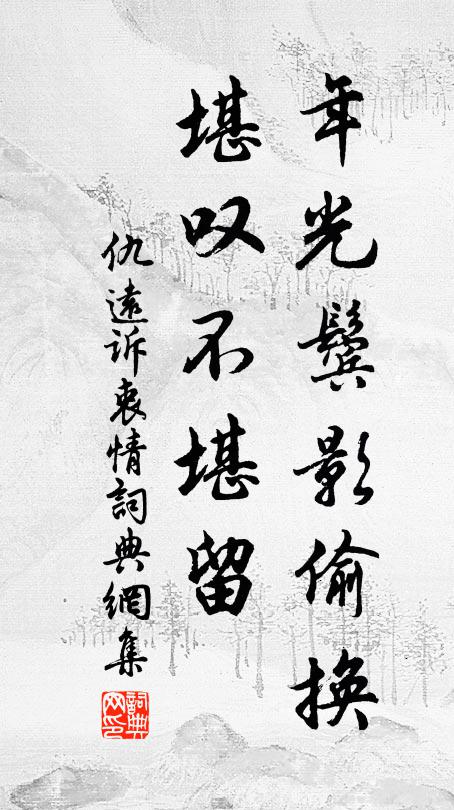 年光鬓影偷换
堪叹不堪留
仇遠訴衷情詞典網集
詞典网印